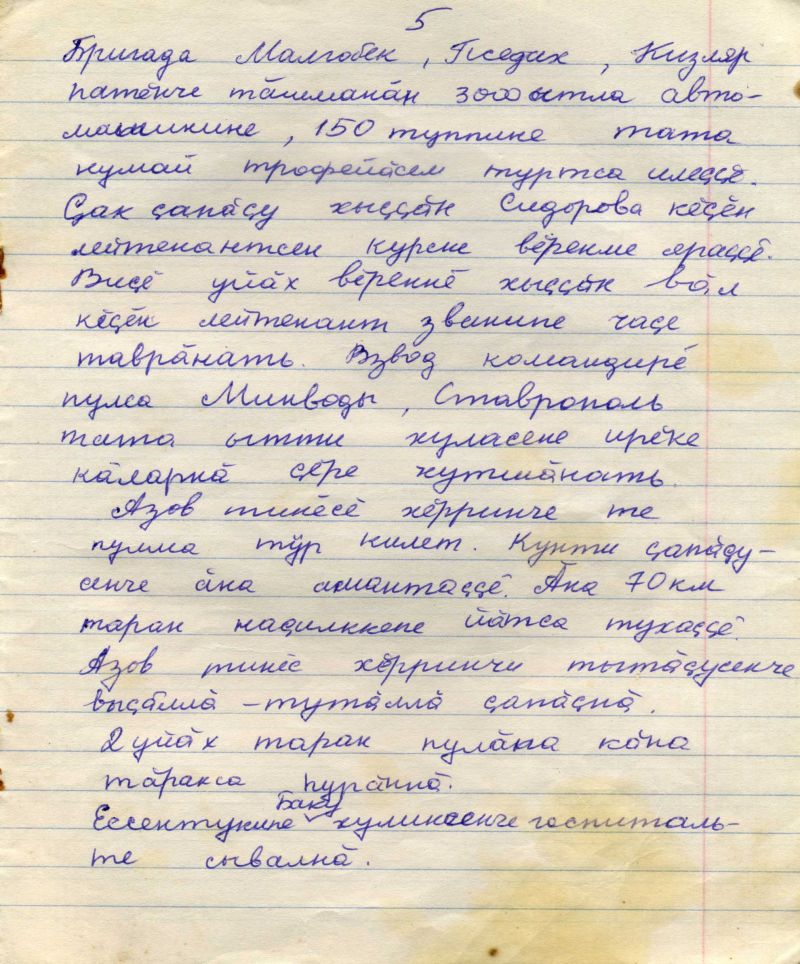 5
Бригада Малгобек, Пседах, Кизляр
патӗнче тӑшманӑн 3000 ытла авто-
машинине, 150 туппине тата
нумай трофейӑсем туртса илеҫҫӗ.
Ҫак ҫапӑҫу хыҫҫӑн Сидорова кӗҫӗн
лейтенантсен курсне вӗренме яраҫҫӗ.
Виҫӗ уйӑх вӗреннӗ хыҫҫӑн вӑл
кӗҫӗн лейтенант званипе чаҫе
таврӑнать. Взвод командирӗ
пулса Минводы, Ставрополь
тата ытти хуласене ирӗке
кӑларнӑ ҫӗре хутшӑнать.
Азов тинӗсӗ хӗрринче те
пулма тӳр килет. Кунти ҫапӑҫу-
сенче ӑна амантаҫҫӗ. Ӑна 70 км
таран наҫилккепе йӑтса тухаҫҫӗ.
Азов тинӗс хӗрринчи тытӑҫусенче
выҫӑллӑ-тутӑллӑ ҫапӑҫнӑ.
2 уйӑх таран пулӑпа кӑна
тӑракса пурӑннӑ.
Ессентукипе Баку хулисенче госпиталь-
те сывалнӑ.